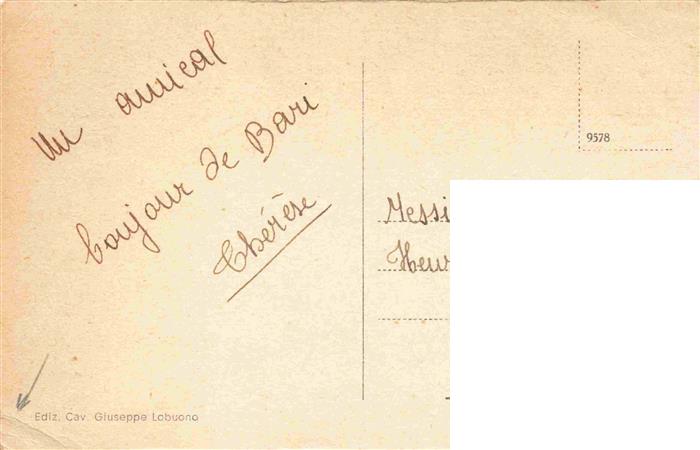 Un amical
bonjour de Bari
Thérèse
9578
Ediz. Cav. Giuseppe Lobuono